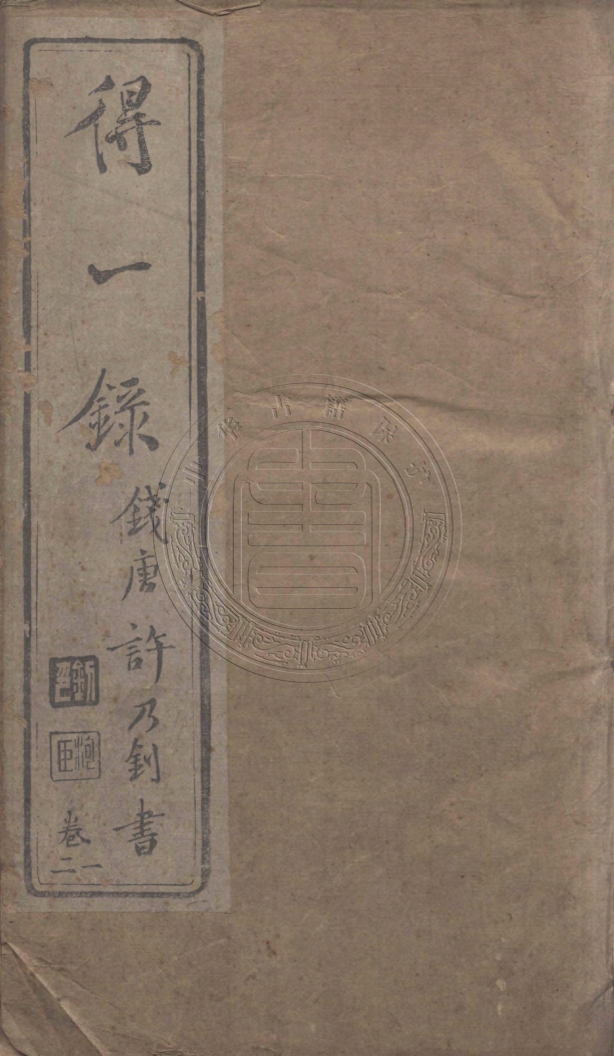 得一錄
錢唐許乃釗書
卷
一二